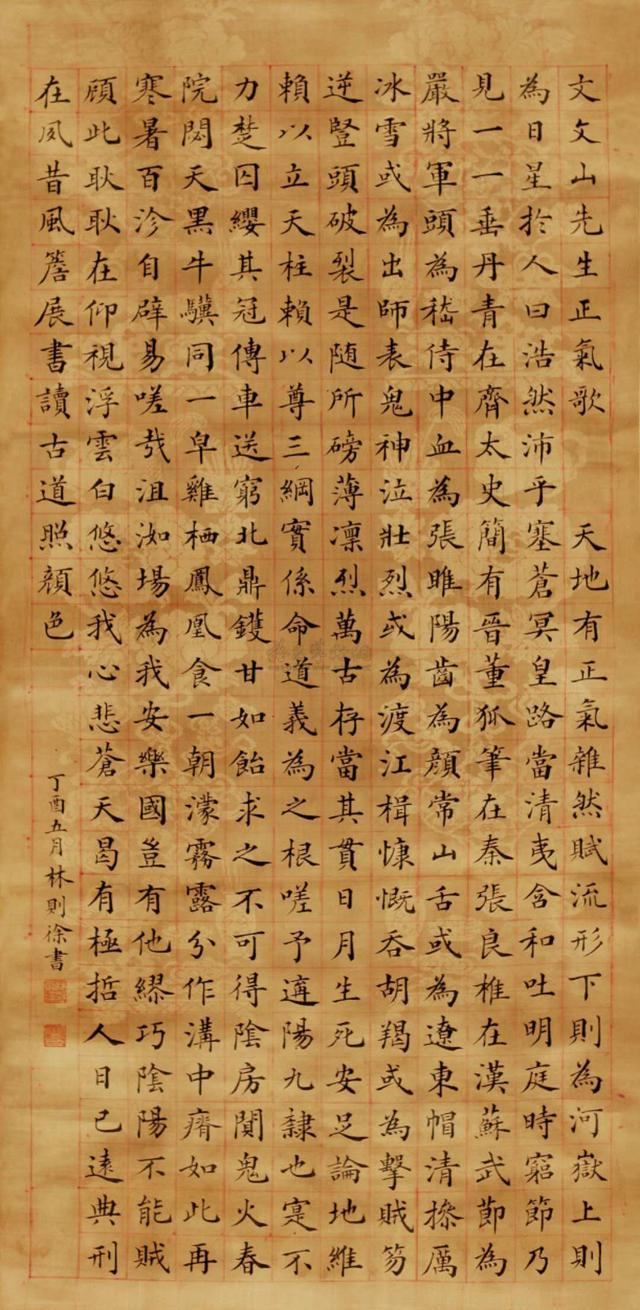 文文山先生正氣歌　天地有正氣雜然賦流形下則為河嶽上則
為日星於人曰浩然沛乎塞蒼冥皇路當清夷含和吐明庭時窮節乃
見一一垂丹青在齊太史簡有晉董狐筆在秦張良椎在漢蘇武節為
嚴將軍頭為嵇侍中血為張睢陽齒為顏常山舌或為遼東帽清操厲
冰雪或為出師表鬼神泣壯烈或為渡江楫慷慨吞胡羯或為擊賊笏
逆豎頭破裂是随所磅薄凛烈萬古存當其貫日月生死安足論地維
賴以立天柱賴以尊三綱實係命道義為之根嗟予遘陽九隸也寔不
力楚囚纓其冠傳車送窮北鼎鑊甘如飴求之不可得陰房闃鬼火春
院閟天黑牛驥同一皁雞栖鳳凰食一朝濛霧露分作溝中瘠如此再
寒暑百沴自辟易嗟哉沮洳場為我安樂國豈有他繆巧陰陽不能賊
顧此耿耿在仰視浮雲白悠悠我心悲蒼天曷有極哲人日已遠典刑
在夙昔風簷展書讀古道照顏色
丁酉五月林則徐書